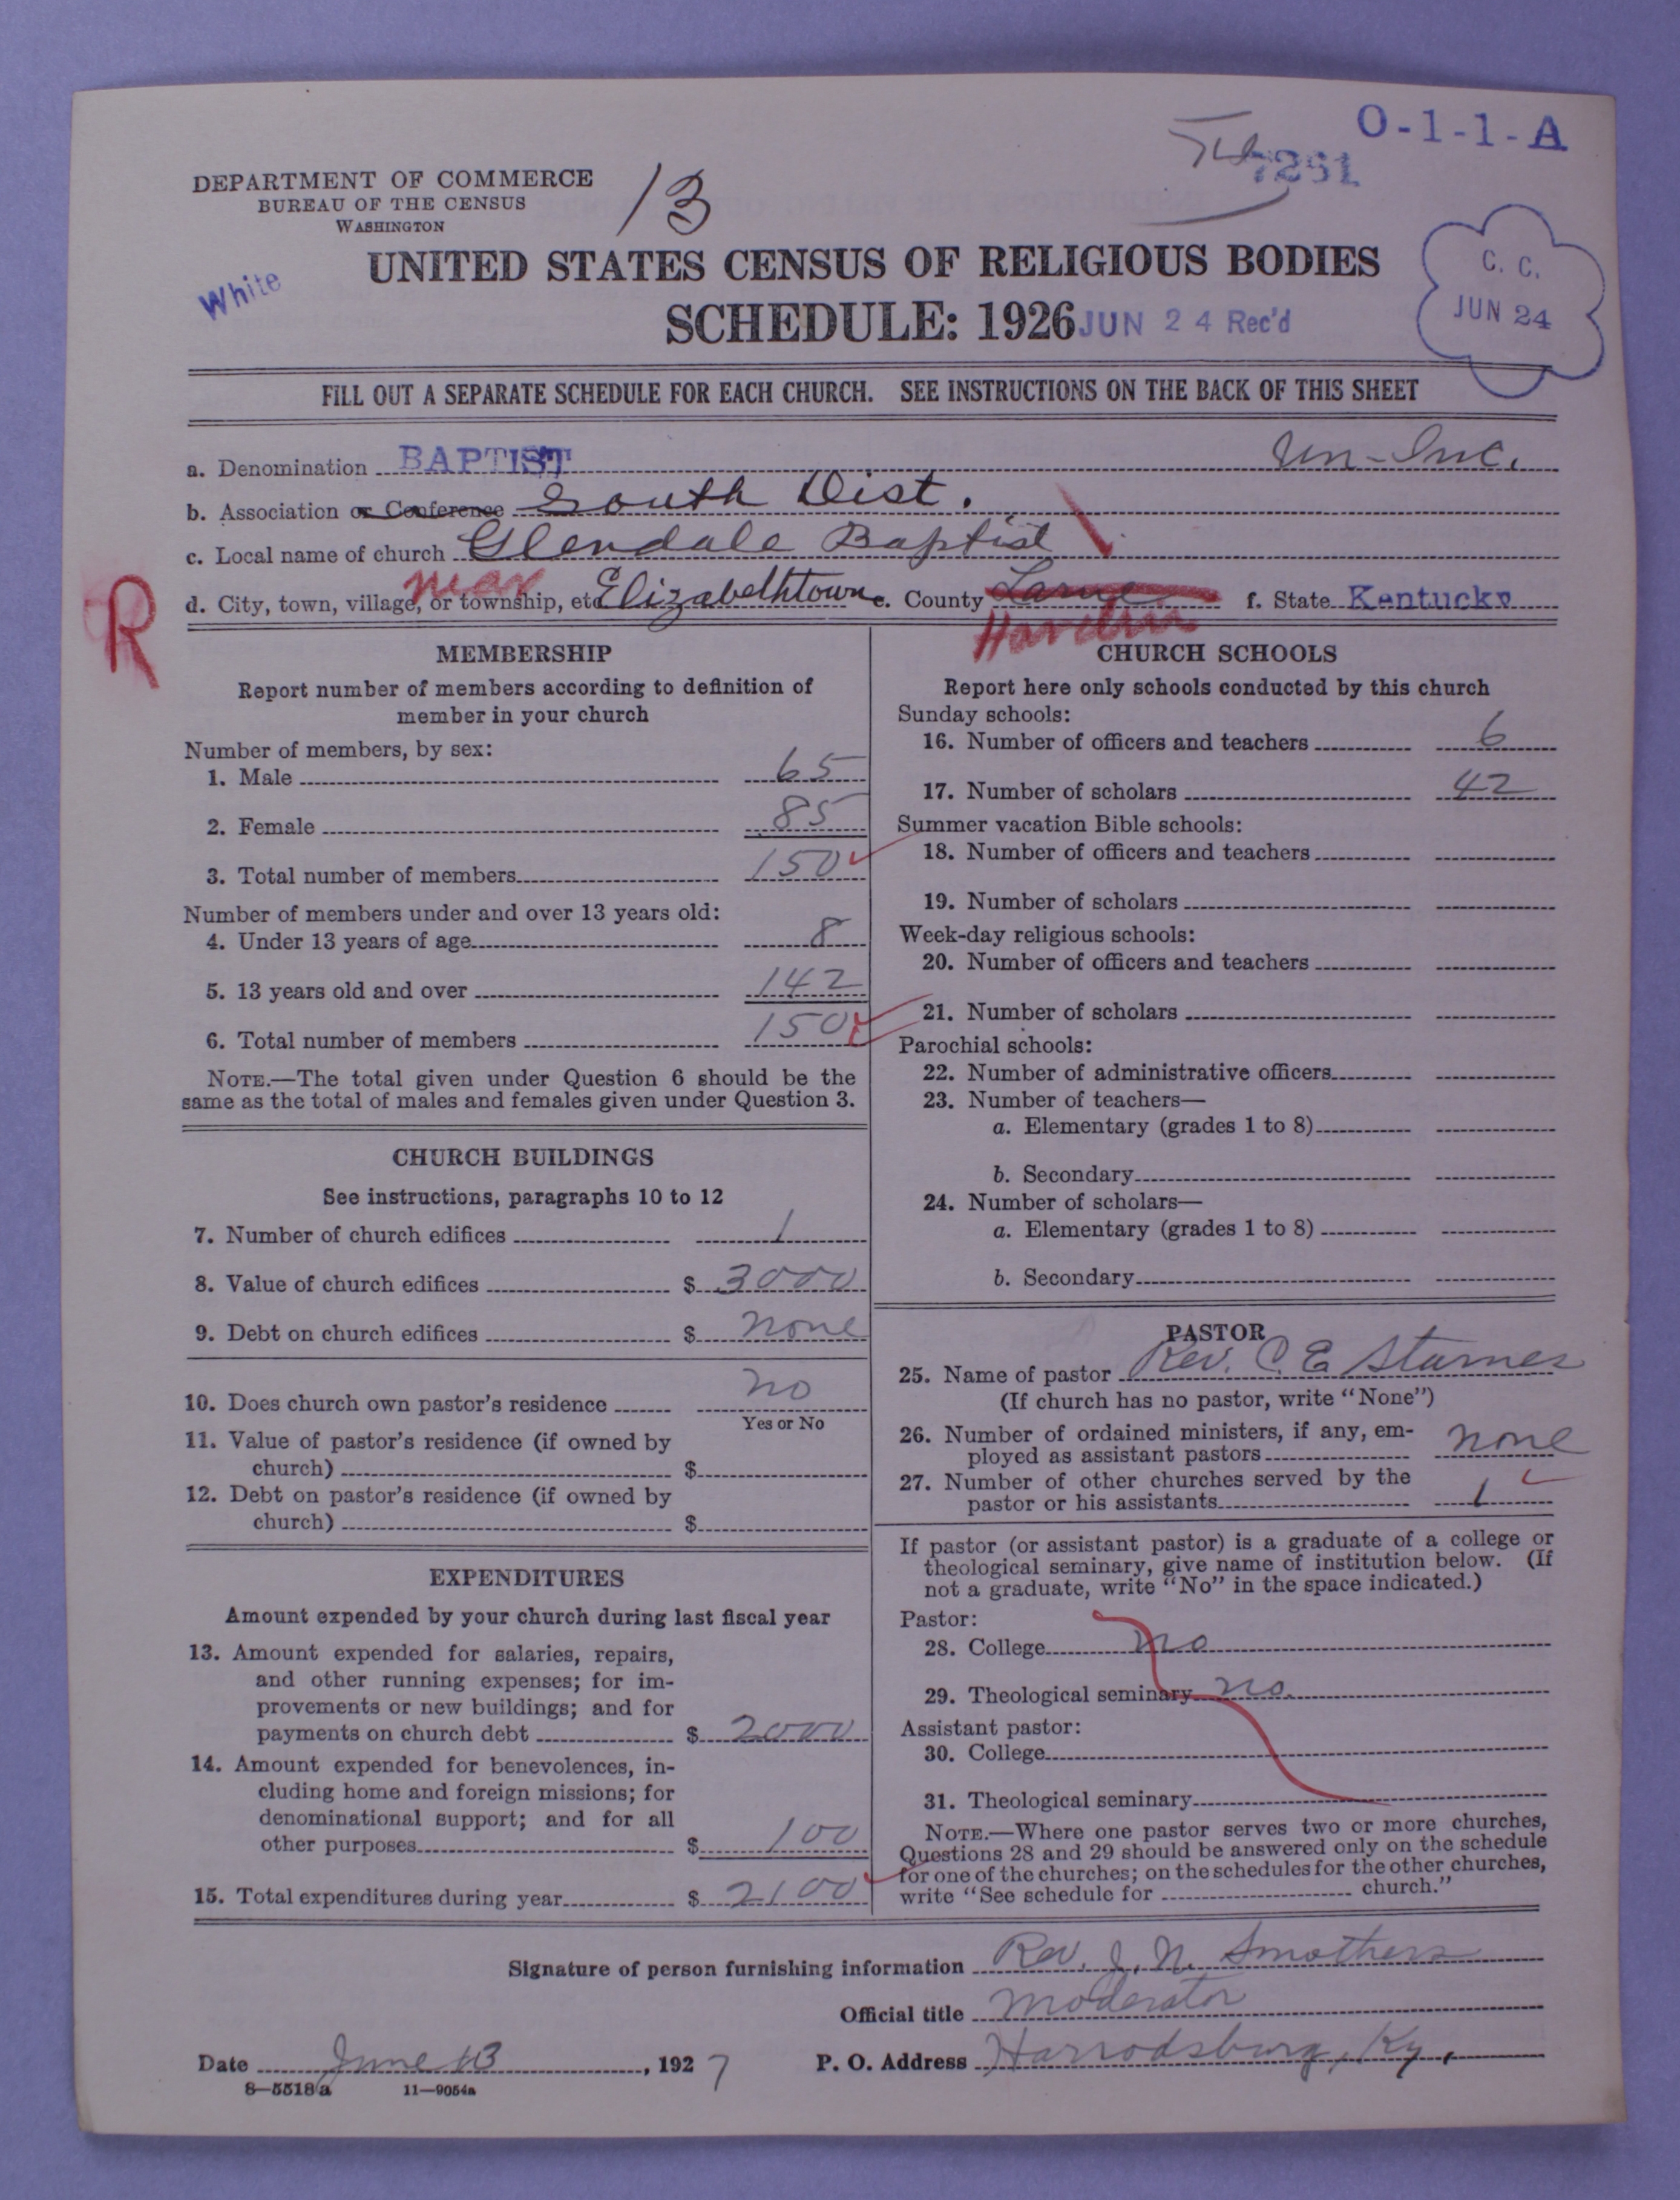 O-1-1-A
7251
DEPARTMENT OF COMMERCE
BUREAU OF THE CENSUS
WASHINGTON
13
White
UNITED STATES CENSUS OF RELIGIOUS BODIES
SCHEDULE: 1926 JUN 24 Rec'd
C. C.
JUN 24
FILL OUT A SEPARATE SCHEDULE FOR EACH CHURCH. SEE INSTRUCTIONS ON THE BACK OF THIS SHEET
a. Denomination BAPTIST Un-Inc.
b. Association or Conference South Dist.
c. Local name of church Glendale Baptist
R
near
d. City, town, village, or township, etc. Elizabethtown e. County Larue f. State Kentucky
Hardin
MEMBERSHIP
Report number of members according to definition of
member in your church
Number of members, by sex:
1. Male 65
2. Female 85
3. Total number of members 150
Number of members under and over 13 years old:
4. Under 13 years of age 8
5. 13 years old and over 142
6. Total number of members 150
NOTE.—The total given under Question 6 should be the
same as the total of males and females given under Question 3.
CHURCH BUILDINGS
See instructions, paragraphs 10 to 12
7. Number of church edifices 1
8. Value of church edifices $ 3000
9. Debt on church edifices $ none
10. Does church own pastor's residence no
Yes or No
11. Value of pastor's residence (if owned by
church) $
12. Debt on pastor's residence (if owned by
church) $
EXPENDITURES
Amount expended by your church during last fiscal year
13. Amount expended for salaries, repairs,
and other running expenses; for im-
provements or new buildings; and for
payments on church debt $ 2000
14. Amount expended for benevolences, in-
cluding home and foreign missions; for
denominational support; and for all
other purposes $ 100
15. Total expenditures during year $ 2100
CHURCH SCHOOLS
Report here only schools conducted by this church
Sunday schools:
16. Number of officers and teachers 6
17. Number of scholars 42
Summer vacation Bible schools:
18. Number of officers and teachers
19. Number of scholars
Week-day religious schools:
20. Number of officers and teachers
21. Number of scholars
Parochial schools:
22. Number of administrative officers
23. Number of teachers—
a. Elementary (grades 1 to 8)
b. Secondary
24. Number of scholars—
a. Elementary (grades 1 to 8)
b. Secondary
PASTOR
25. Name of pastor Rev. C. E. Starnes
(If church has no pastor, write "None")
26. Number of ordained ministers, if any, em-
ployed as assistant pastors none
27. Number of other churches served by the
pastor or his assistants 1
If pastor (or assistant pastor) is a graduate of a college or
theological seminary, give name of institution below. (If
not a graduate, write "No" in the space indicated.)
Pastor:
28. College no
29. Theological seminary no
Assistant pastor:
30. College
31. Theological seminary
NOTE.—Where one pastor serves two or more churches,
Questions 28 and 29 should be answered only on the schedule
for one of the churches; on the schedules for the other churches,
write "See schedule for church."
Signature of person furnishing information Rev. J. N. Smothers
Official title Moderator
Date June 13, 1927 P. O. Address Harrodsburg, Ky.
8—5518a 11—9054a